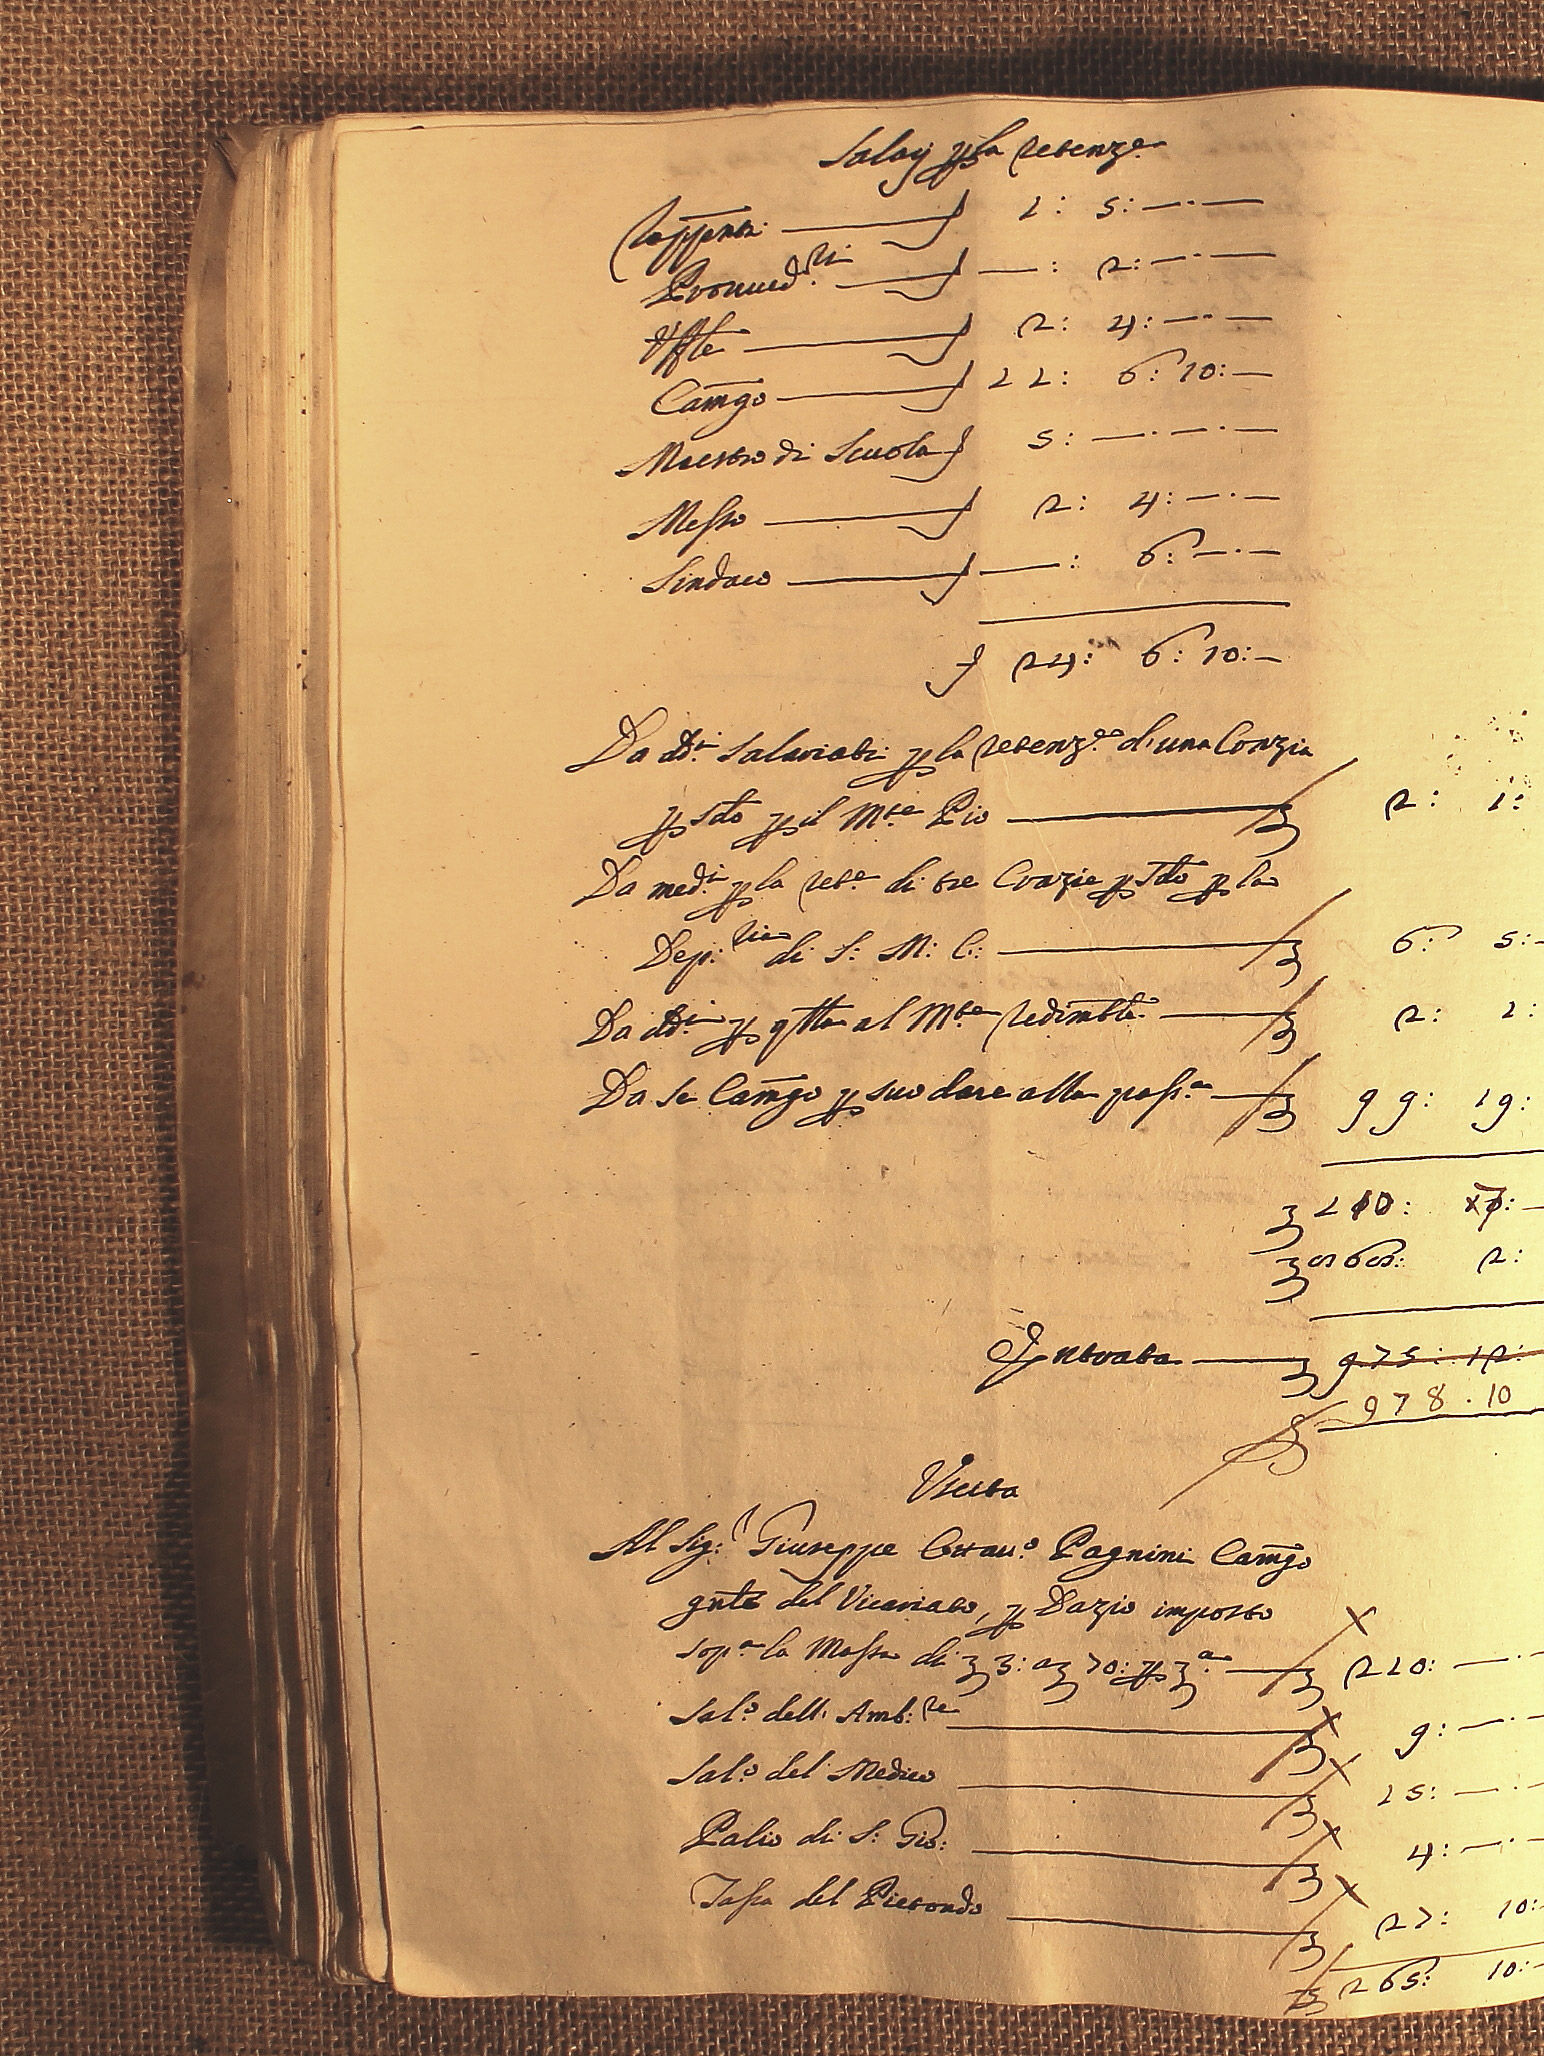 Salarj p la retenz.e
Rappnti: ƒ 1: 5: — · —
Provued.ri ƒ — : 2: — · —
Uffle ƒ 2: 4: — · —
Camgo ƒ 11: 6: 10: —
Maestro di Scuola ƒ 5: — · — · —
Messo ƒ 2: 4: — · —
Sindaco ƒ — : 6: — · —
ƒ 24: 6: 10: —
Da dd.i Salariati p la retenz.e d'una Crazia
p sdo p il M.te Pio 2: 1:
Da med.i p la ret.e di tre Crazie p sdo p la
Dep.ria di S: M: C: 6: 5: —
Da dd.i p qtta al M.te redimble. 2: 1:
Da Se Camgo p suo dare alla pass.a 99: 19:
110:
868: 2:
Entrata 975: 12:
978 . 10
Uscita
Al Sig.r Giuseppe Ottav.o Pagnini Camgo
gnle del Vicariato, p Dazio imposto
sop.a la Massa di 3: a 70: p 210: — ·
Sal.o dell' Amb.re 9: — ·
Sal.o del Medico 15: — ·
Palio di S: Gio: 4: — ·
Tassa del Pietondo 27: 10: —
265: 10: —